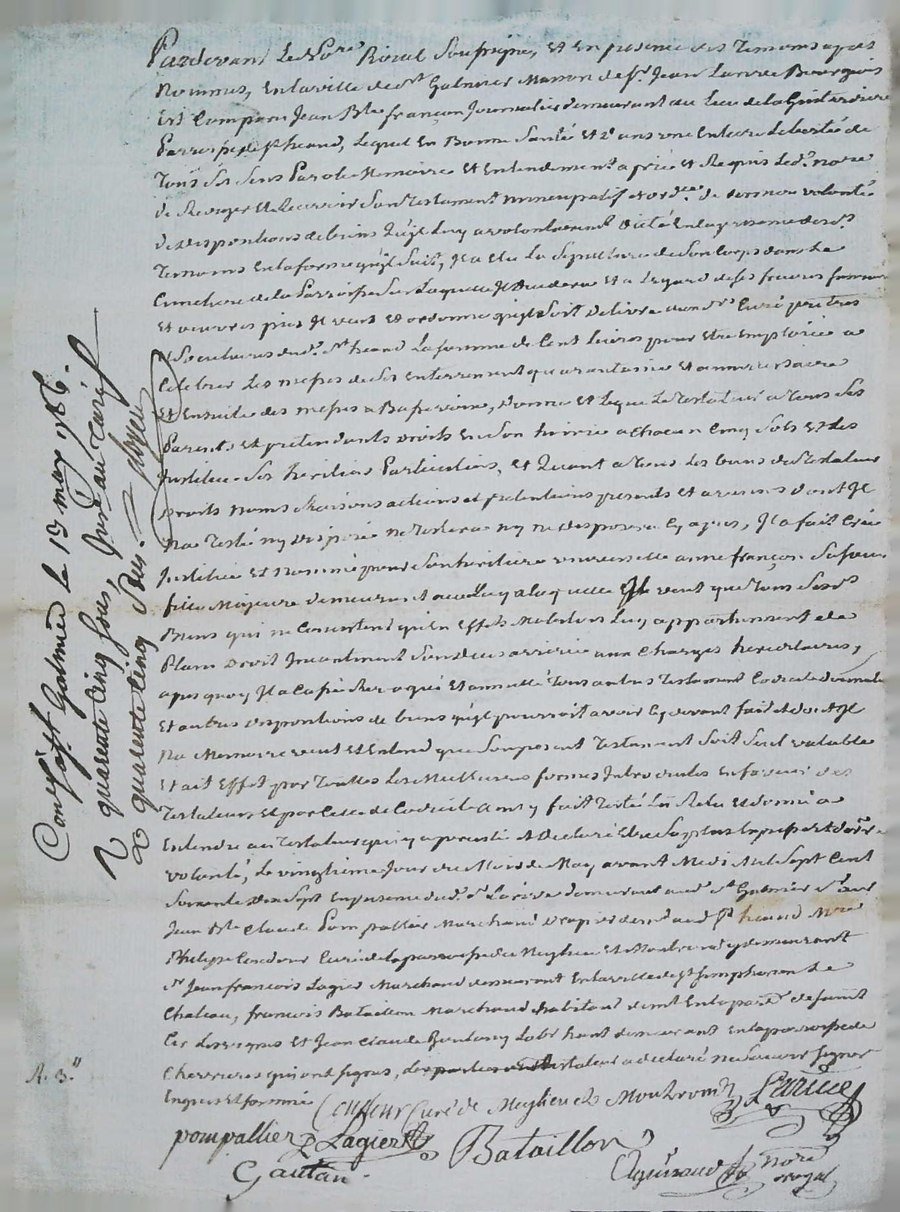 Pardevant Le Nore Roial Soussigné, Et En presence des Temoins apres
Nommes, En la ville de St Galmier Maison de Sr Jean Larive Bourgeois
Est Comparu Jean Bte françon Journalier demeurant au Lieu de la
Parroisse de St heand, Lequel En Bonne Santé Et dans une Entiere Liberté de
Tous Ses Sens Parole Memoire Et Entendement a prié Et Requis Ledt Nore
de Rediger Et Recevoir Son Testament nuncupatif et ordre de derniere volonté
Et dispositions de biens qu'il Luy a volontairement dicté En la presence desdts
Temoins En la forme qu'il Suit, Il a Elu La Sepulture de Son Corps dans Le
Cimetiere de la Parroisse Sur Laquelle Il decedera Et a L'egard de Ses frais funeraires
Et oeuvres pies Il veut Et ordonne qu'il Soit delivré aux Srs Curé pretres
Et Societaires dudt St heand La Somme de Cent Livres pour Etre Emploiée a
Celebrer Les Messes de Ses Enterrement quarantaine Et anniversaire
Et Ensuite des Messes a Basse voix, donne Et Legue Le Testateur a Tous Ses
Parents Et pretendants droits En Son hoirie a Chacun Cinq Sols Et Les
Institue Ses heritiers Particuliers, Et Quant a Tous Les biens du Testateur
Droits Noms Raisons actions et pretentions presents Et avenir dont Il
N'a Testé ny disposé ne Testera ny ne disposera Cy apres, Il a fait Créé
Institué Et Nommé pour Son heritiere universelle anne françon Sa
fille Majeure demeurant avec Luy a Laquelle Il veut que Tous Sesdts
Biens qui ne Consistent qu'en Effets Mobiliers Luy appartiennent de
Plain Droit Incontinent Son deces arrivé aux Charges hereditaires,
apres quoy Il a Cassé Revoqué Et annullé Tous autres Testament Codicile donnation
Et autres dispositions de biens qu'il pourroit avoir Cy devant fait Et dont Il
Na Memoire veut Et Entend que Son present Testament Soit Seul valable
Et ait Effet par Touttes Les Meilleures formes Introduites En faveur des
Testateurs Et par Celle de Codicile ainsy fait Testé Lu Relu Et donné a
Entendre au Testateur qui y a persisté Et Declaré Etre Sa plus Expresse Et derre
volonté, Le vingtieme Jour du Mois de May avant Midi Mil Sept Cent
Soixante Sept En presence dudt Sr Larive demeurant audt St Galmier Sr
Jean Bte Claude Pompallier Marchand Drapier demt audt St heand Mre
Philippe Coudour Curé de la parroisse de Meylieu Et Montrond y demeurant
Sr Jean francois Lagier Marchand demeurant En la ville de St Simphorien Le
Chateau, francois Bataillon Marchand habitant demt En la parre de
Et Jean Claude demeurant En la parroisse de
Chevrieres qui ont Signés, Le testateur a declaré ne Scavoir Signer
Enquis Et Sommé
Coudour Curé de Meylieu Et Montrond Larive
pompallier Lagier Bataillon
Gautan Nore
Royal
Conts a St Galmier Le 13 may 1786.
R quarente Cinq Sous Suivt au tarif
& quarente Cinq Sous.
R. 3.11